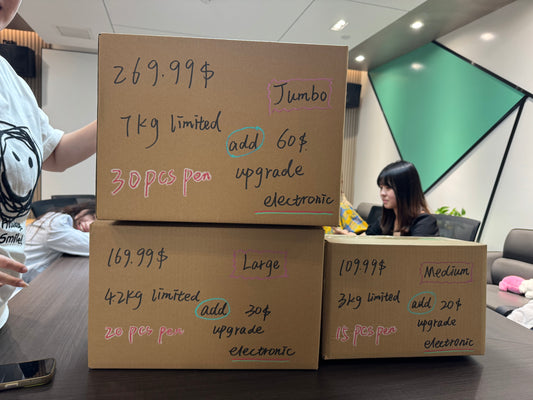 269.99$
Jumbo
7kg limited
add 60$
30pcs pen
upgrade
electronic
169.99$
Large
42kg limited
add 30$
20 pcs pen
upgrade
electronic
109.99$
Medium
3kg limited
add 20$
15 pcs pen
upgrade
electronic
Smile